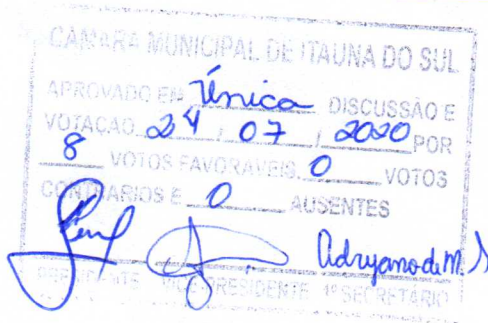 CÂMARA MUNICIPAL DE ITAUNA DO SUL
APROVADO EM Única DISCUSSÃO E
VOTAÇÃO 24 / 07 / 2020 POR
8 VOTOS FAVORAVEIS 0 VOTOS
CONTRÁRIOS E 0 AUSENTES
Adryano de M. S
PRESIDENTE VICE-PRESIDENTE 1º SECRETÁRIO